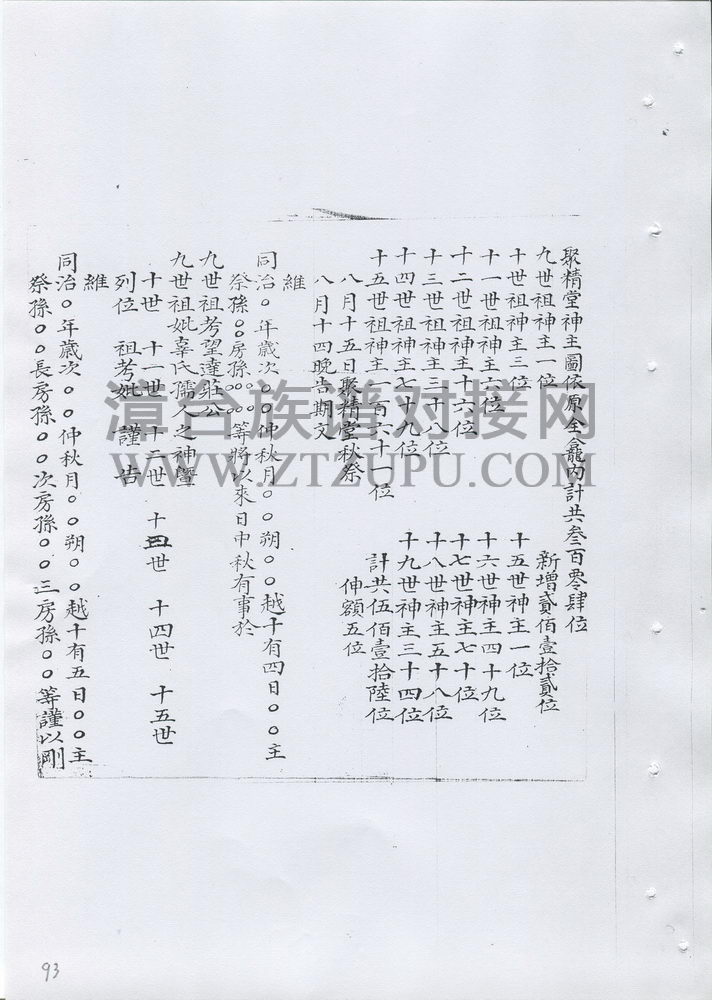 聚精堂神主圖依原全龕內計共叁百零肆位
九世祖神主一位
十世祖神主三位
十一世祖神主六位
十二世祖神主十六位
十三世祖神主三十八位
十四世祖神主七十九位
十五世祖神主一百六十一位
新增貳佰壹拾貳位
十五世神主一位
十六世神主四十九位
十七世神主七十位
十八世神主五十八位
十九世神主三十四位
計共伍佰壹拾陸位
伸額五位
八月十五日聚精堂秋祭
八月十四晚告期文
維
同治○年歲次○○仲秋月○○朔○○越十有四日○○主
祭孫○○房孫○○○○等將以來日中秋有事於
九世祖考望達莊公
九世祖妣辜氏孺人之神暨
十世 十一世 十二世 十三世 十四世 十五世
列位 祖考妣 謹告
維
同治○年歲次○○仲秋月○○朔○○越十有五日○○主
祭孫○○長房孫○○次房孫○○三房孫○○等謹以剛
漳台族谱对接网
WWW.ZTZUPU.COM
93